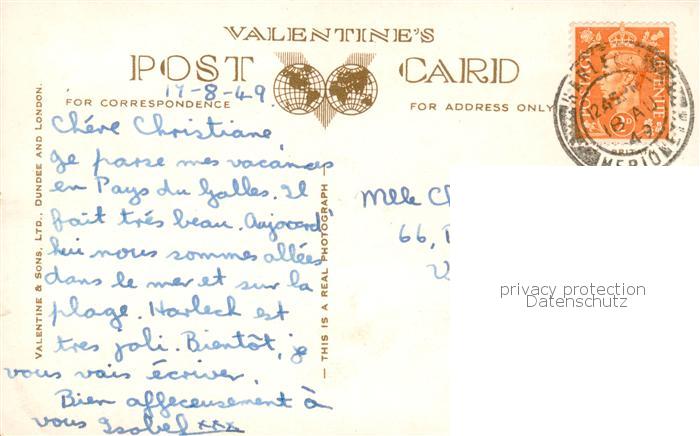 VALENTINE'S
POST CARD
17-8-49.
FOR CORRESPONDENCE
FOR ADDRESS ONLY
Chére Christiane
Je parse mes vacances
en Pays du Galles. Il
fait trés beau. Aujourd'
hui nous sommes allées
dans le mer et sur la
plage. Harlech est
tres joli. Bientôt, je
vous vais écriver.
Bien affeceusement à
vous Isobel xxx
VALENTINE & SONS, LTD., DUNDEE AND LONDON.
— THIS IS A REAL PHOTOGRAPH —
Mlle Ch
66,
privacy protection
Datenschutz
REVENUE
HARLECH
12 45 PM
18 AU
49
MERIONETH